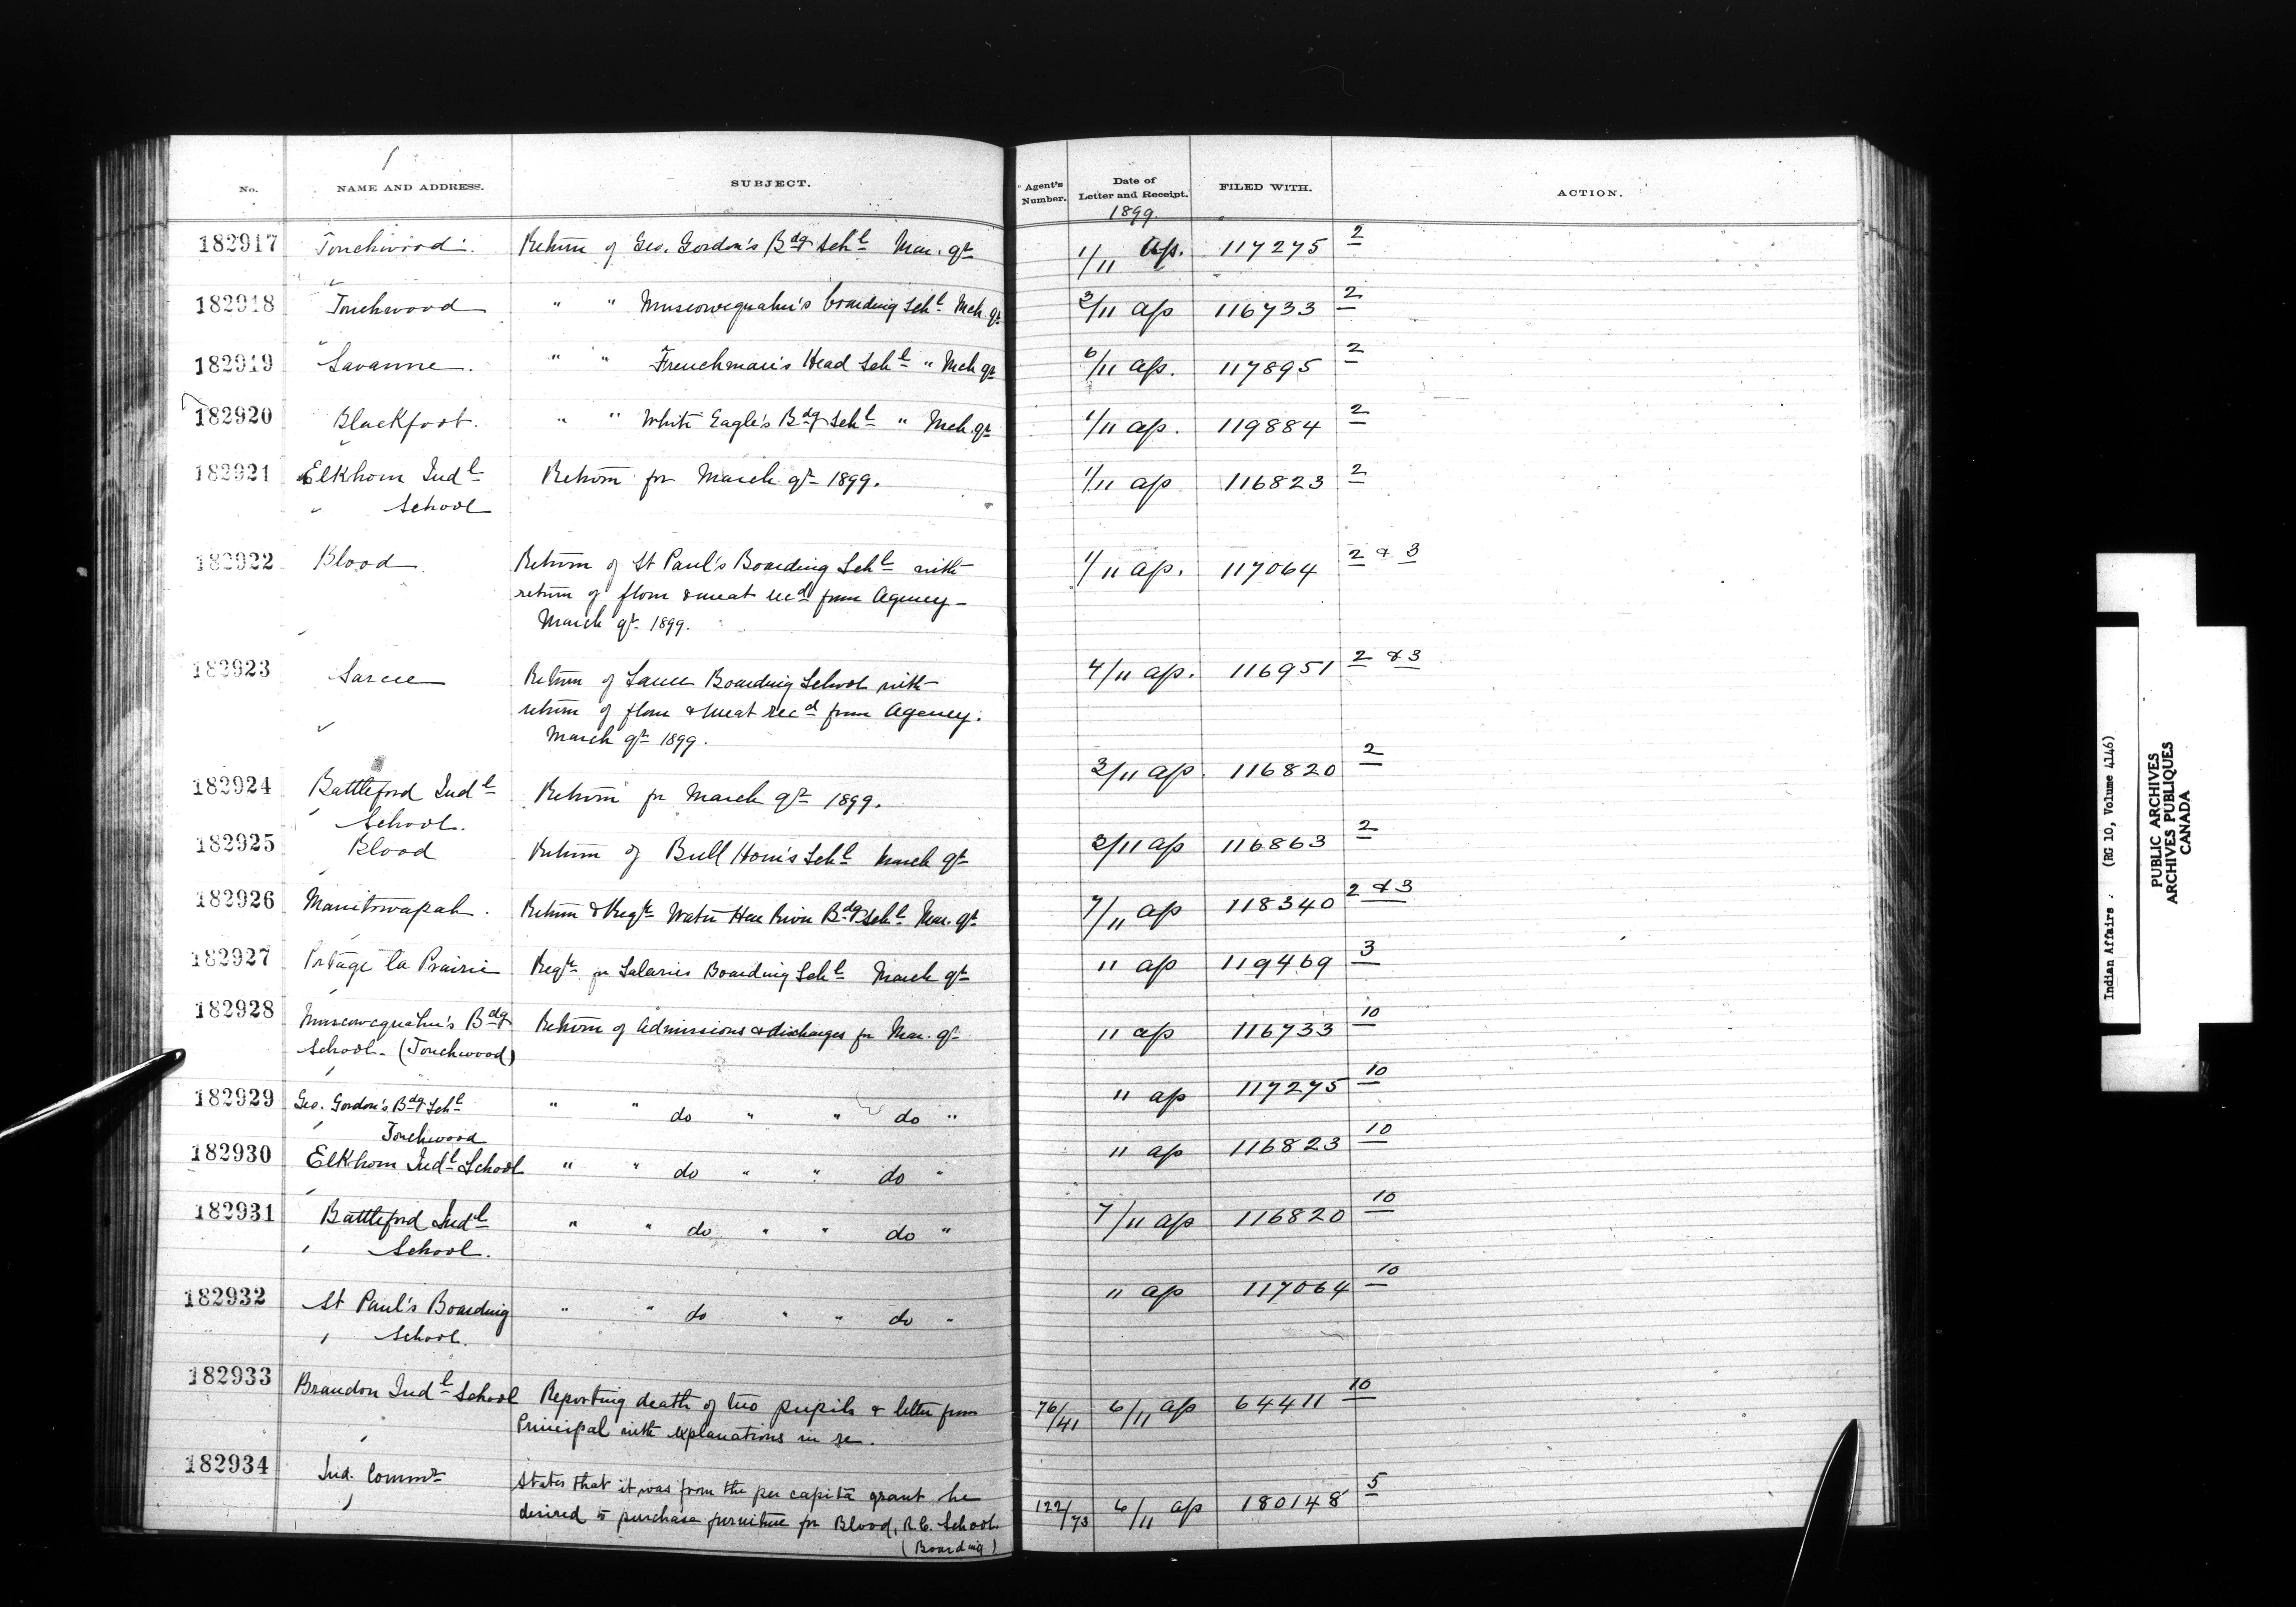 No. NAME AND ADDRESS. SUBJECT. Agent's Number. Date of Letter and Receipt. FILED WITH. ACTION.
1899.
182917 Touchwood. Return of Geo. Gordon's Bdg Schl Mar. qr 1/11 Ap. 117275 2
182918 Touchwood " " Muscowequahn's boarding Schl Mch qr 3/11 ap 116733 2
182919 Savanne. " " Frenchman's Head Schl " Mch qr 6/11 ap. 117895 2
182920 Blackfoot. " " White Eagle's Bdg Schl " Mch. qr 1/11 ap. 119884 2
182921 Elkhorn Indl Return for March qr 1899. 1/11 ap 116823 2
" School
182922 Blood Return of St Paul's Boarding Schl with 1/11 ap. 117064 2 & 3
return of flour & meat recd from Agency -
March qr. 1899.
182923 Sarcee Return of Sarcee Boarding School with 4/11 ap. 116951 2 & 3
return of flour & meat recd from Agency.
March qr 1899.
182924 Battleford Indl Return for March qr 1899. 3/11 ap. 116820 2
School.
182925 Blood Return of Bull Horn's Schl March qr 3/11 ap 116863 2
182926 Manitowapah. Return & Reqn Water Hen River Bdg Schl Mar. qr 7/11 ap 118340 2 & 3
182927 Portage la Prairie Reqn for Salaries Boarding Schl March qr 11 ap 119469 3
182928 Muscowequahn's Bdg Return of Admissions & discharges for Mar. qr 11 ap 116733 10
School. (Touchwood)
182929 Geo. Gordon's Bdg Schl " " do " " do " 11 ap 117275 10
Touchwood
182930 Elkhorn Indl School " " do " " do " 11 ap 116823 10
182931 Battleford Indl " " do " " do " 7/11 ap 116820 10
School.
182932 St Paul's Boarding " " do " " do " 11 ap 117064 10
School.
182933 Brandon Indl School Reporting death of two pupils & letter from 76/41 6/11 ap 64411 10
Principal with explanations in re.
182934 Ind. Commr States that it was from the per capita grant he 122/73 6/11 ap 180148 5
desired to purchase furniture for Blood, R.C. School.
(Boarding)
Indian Affairs. (RG 10, Volume 4146)
PUBLIC ARCHIVES
ARCHIVES PUBLIQUES
CANADA